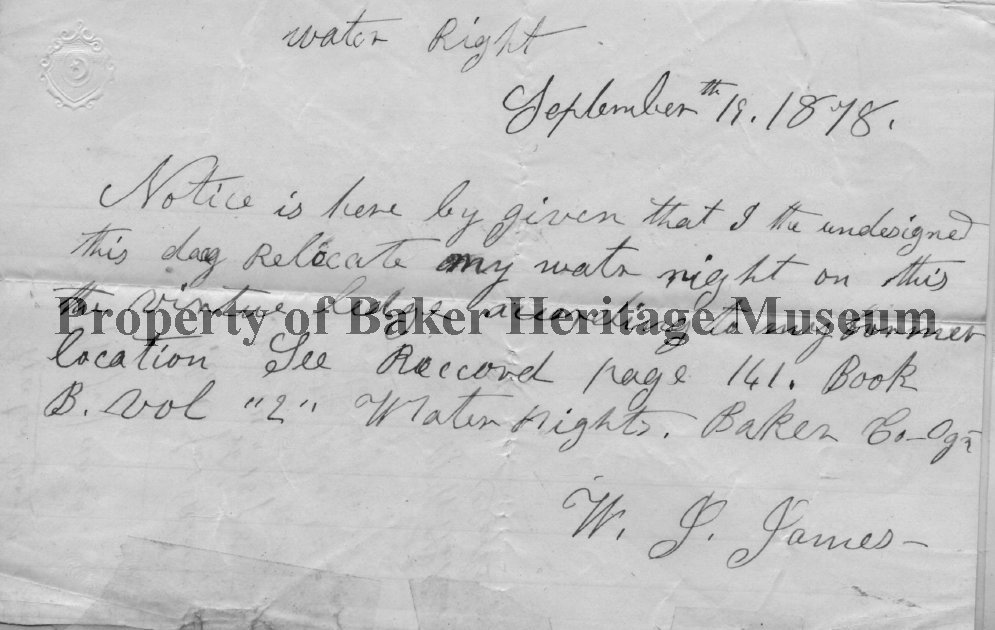 water Right
September 19th. 1878.
Notice is here by given that I the undesigned
this day Relocate my watr right on this
the virtue ledge according to my former
Property of Baker Heritage Museum
location See Reccord page 141. Book
B. Vol "2" Water Rights. Baker Co-Ogn
W. J. James-